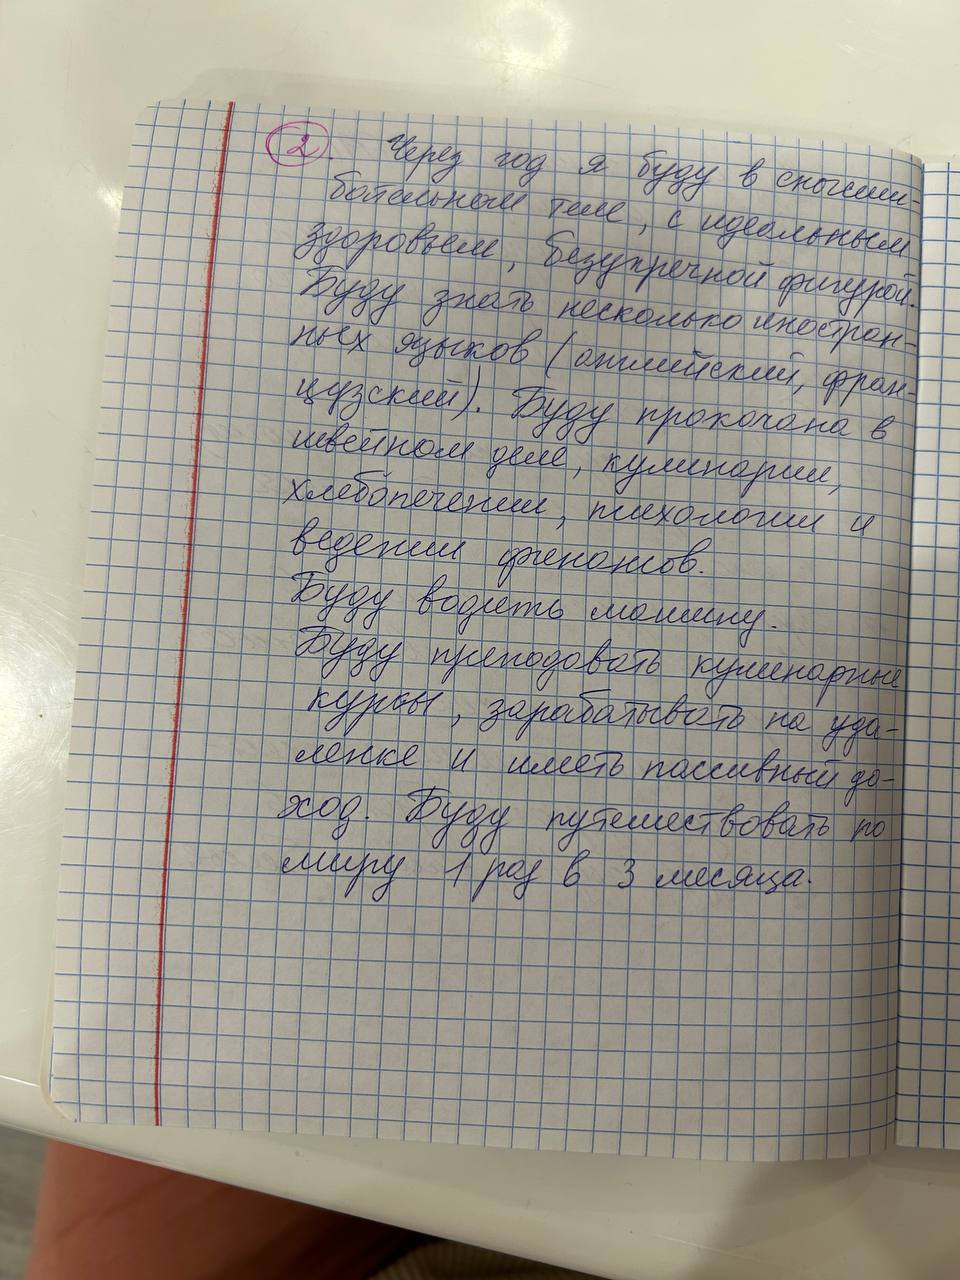 2. Через год я буду в сногсши-
бательном теле, с идеальным
здоровьем, безупречной фигурой.
Буду знать несколько иностран-
ных языков (английский, фран-
цузский). Буду прокачана в
швейном деле, кулинарии,
хлебопечении, психологии и
ведении финансов.
Буду водить машину.
Буду преподовать кулинарные
курсы, зарабатывать на уда-
ленке и иметь пассивный до-
ход. Буду путешествовать по
миру 1 раз в 3 месяца.